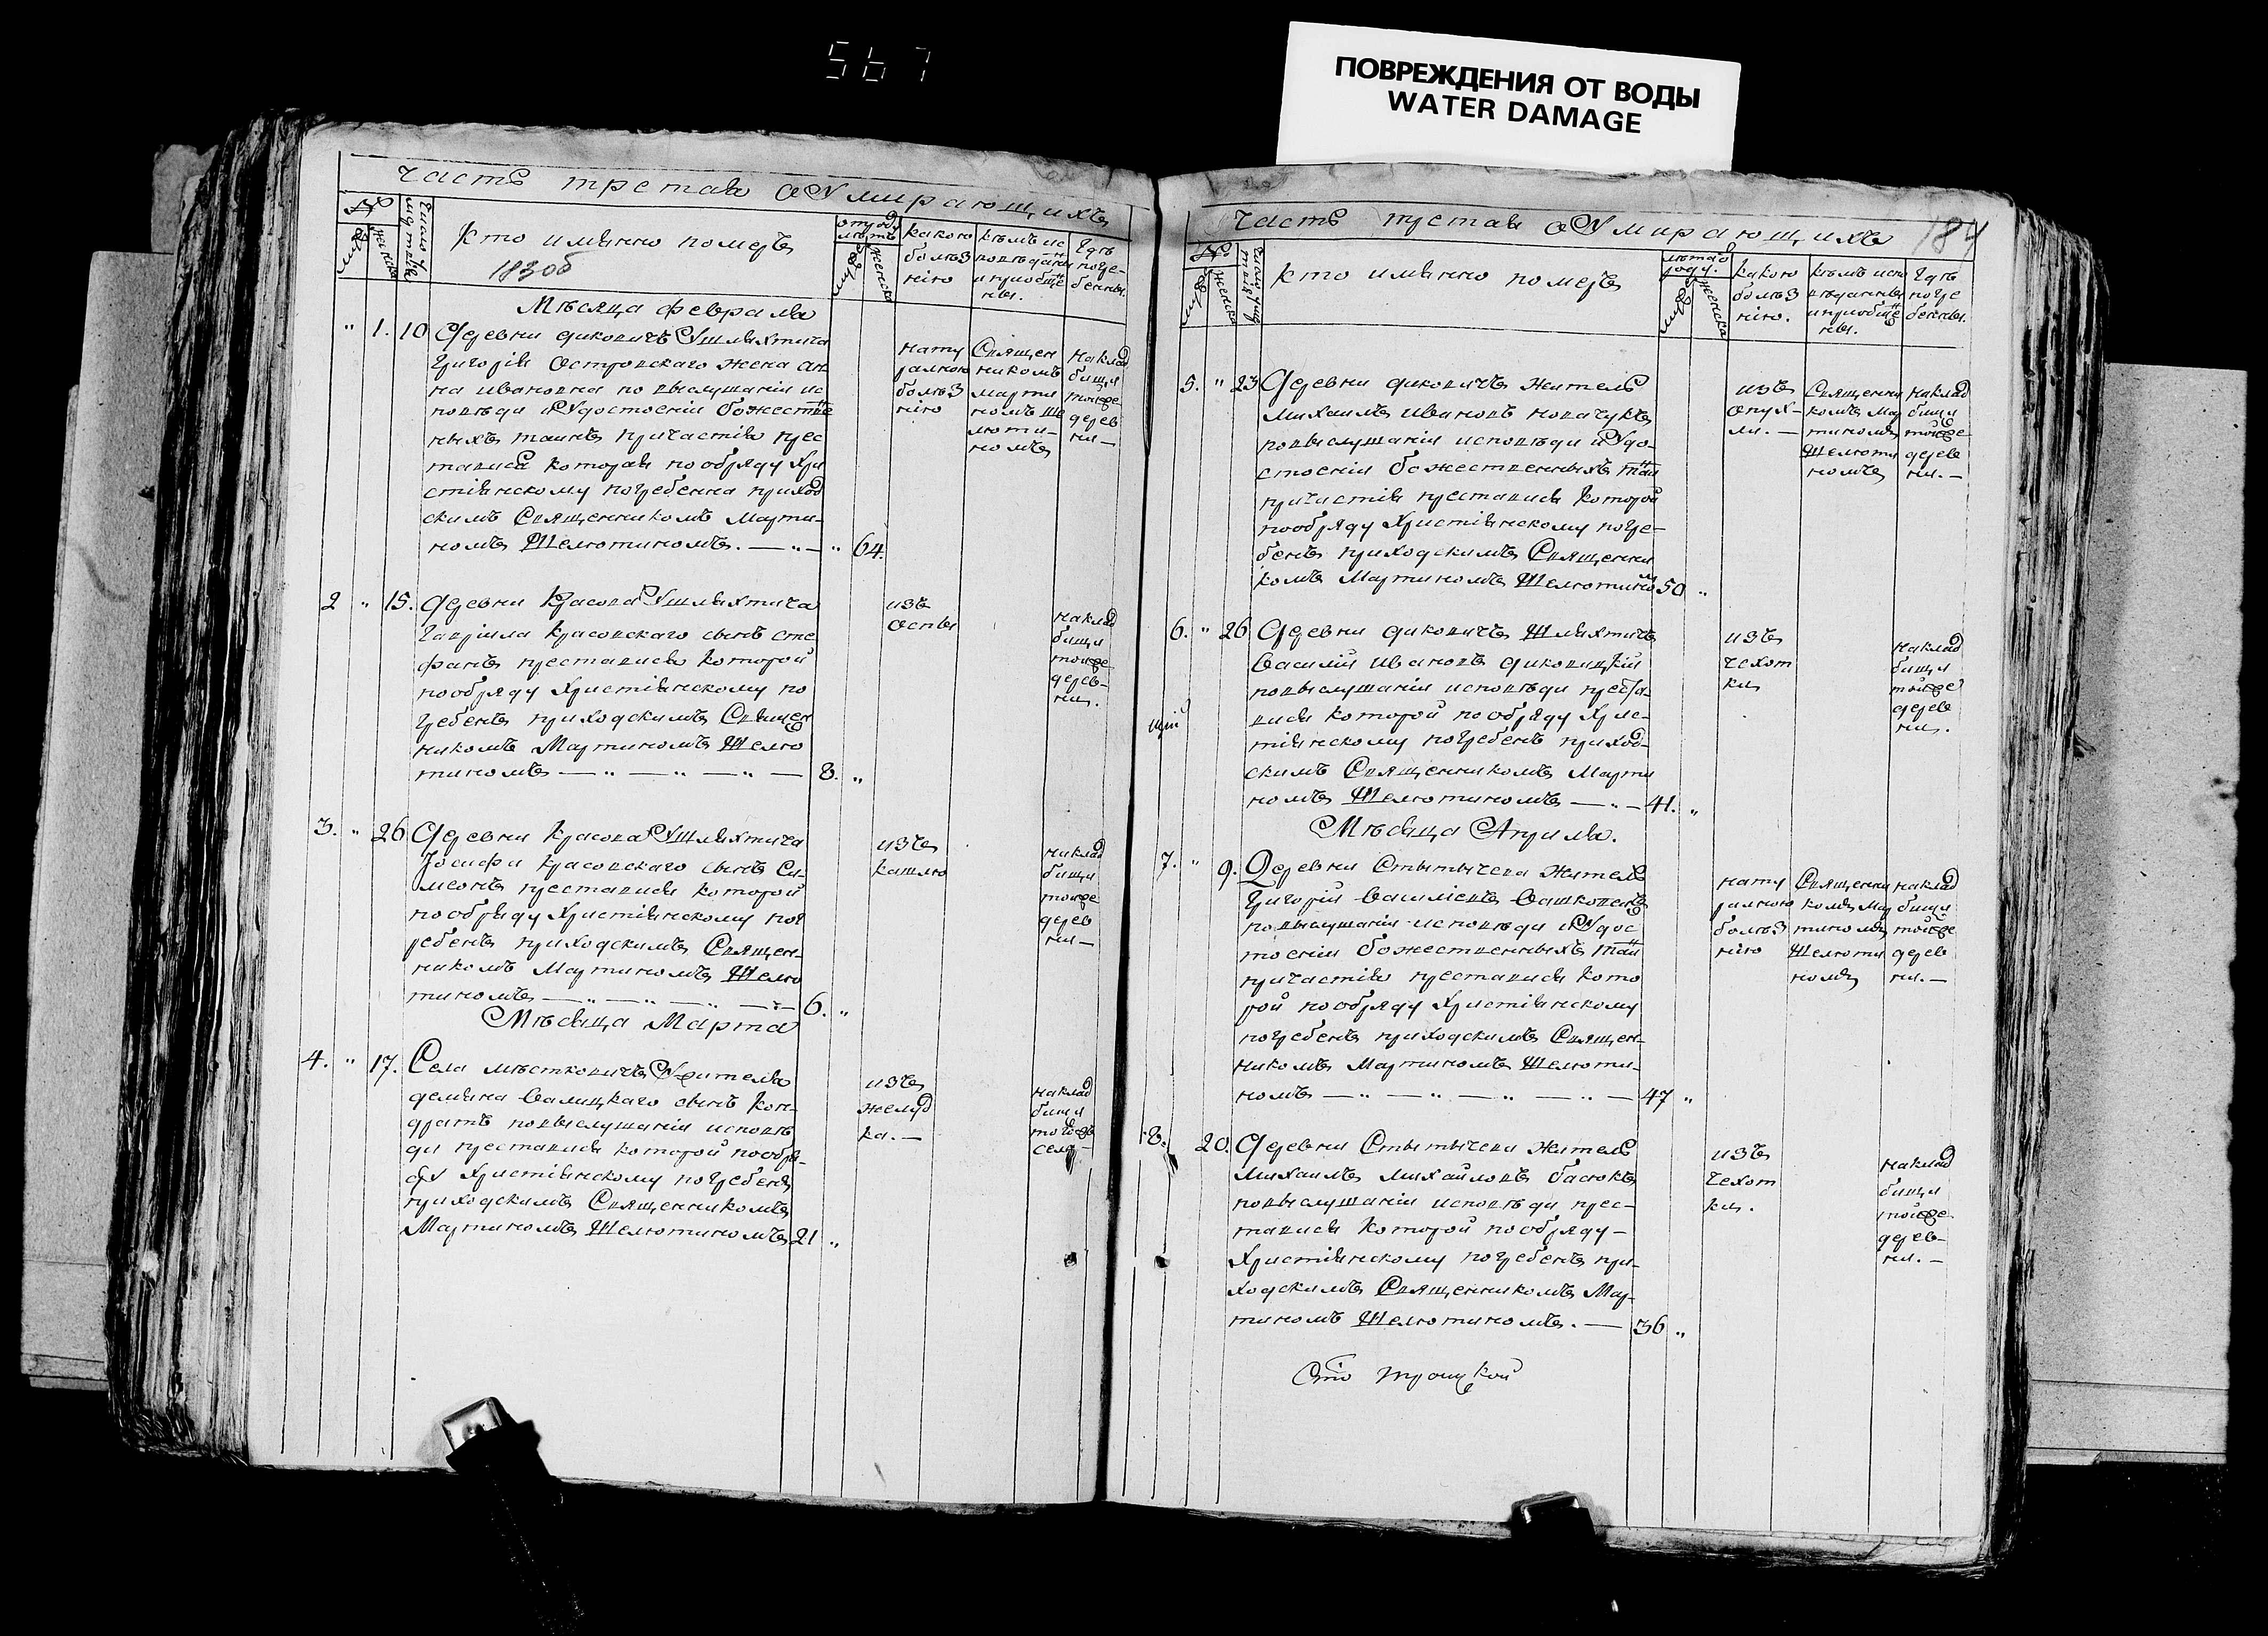 567
ПОВРЕЖДЕНИЯ ОТ ВОДЫ
WATER DAMAGE
Часть третая оУмирающихъ
№
муж
женска
Кто имянно померъ
1830б
какою
болѣз
нію
кѣмъ ис
повѣданы
и приобще
ны.
Гдѣ
погре-
бенны.
Мѣсяца февраля
" 1. 10 Деревни дикович Ушляхтича
Григорія Островскаго жена ан
на ивановна по выслушаніи ис
повѣди иУдостоеніи божестве
ныхъ таинъ причастія прес
тавися которая по обряду Хри
стіянскому погребенна приход
скимъ Священникомъ Марти-
номъ Шелютиномъ. — " — " 64.
нату
ралною
болѣз
нію
Священ
никомъ
марти
номъ Ше
люти-
номъ
на клад
бищи
тойже
дерев
ни —
2 " 15. Деревни Красова Ушляхтича
Гавріила Красовскаго сынъ сте
фанъ преставися которой
по обряду Христіянскому по
гребенъ приходскимъ Священ
никомъ Мартиномъ Шелю
тиномъ — " — " — " — 8. "
изъ
оспы
на клад
бищи
тойже
дерев-
ни.
3. " 26 Деревни Красова Ушляхтича
Іосифа Красовскаго сынъ Си-
меонъ преставися которой
по обряду Христіянскому пог
ребенъ приходскимъ Священ-
никомъ Мартиномъ Шелю
тиномъ — " — " — " — 6. "
изъ
кашлю
на клад
бищи
тойже
дерев
ни —
Мѣсяца Марта
4. " 17. Села мѣстковичъ Ужителя
демяна Валицкаго сынъ Кон-
дратъ по выслушаніи исповѣ
ди преставися которой по обря-
ду Христіянскому погребенъ
приходскимъ Священникомъ
Мартиномъ Шелютиномъ 21 "
изъ
желуд
ка. —
на клад
бищи
тогожъ
села —
Часть третая оУмирающихъ
184
№
муж
женска
Кто имянно померъ
какою
болѣз
нію.
кѣмъ испо
вѣданны
и приобще
ны.
Гдѣ
погре
бенны.
5. " 23 Деревни диковичъ житель
Михаилъ Ивановъ
по выслушаніи исповѣди иУдо-
стоеніи божественныхъ таин
причастія преставися которой
по обряду Христіянскому погре-
бенъ приходскимъ Священни
комъ Мартиномъ Шелютином 50 "
изъ
опух-
ли. —
Священни
комъ Мар
тиномъ
Шелюти
номъ
на клад
бищи
тойже
дерев
ни. —
6. " 26 Деревни диковичъ Шляхтичъ
Василій Ивановъ диковицкій
по выслушаніи исповѣди преста-
вися которой по обряду Хрис-
тіянскому погребенъ приход-
скимъ Священникомъ Марти
номъ Шелютиномъ — " — 41. "
изъ
чехот
ки
на клад
бищи
тойже
дерев
ни.
Мѣсяца Априля.
7. " 9. Деревни Стытычева житель
Григорій Василіевъ Вашковецъ
по выслушаніи исповѣди иУдос
тоеніи божественныхъ таин
причастія преставися кото
рой по обряду Христіянскому
погребенъ приходскимъ Священ-
никомъ Мартиномъ Шелюти-
номъ — " — " — " — " — 47 "
нату
ралною
болѣз
нію
Священни
комъ Мар
тиномъ
Шелюти
номъ
на клад
бищи
тойже
дерев
ни. —
8. 20. Деревни Стытычева житель
Михаилъ михайловъ басюкъ
по выслушаніи исповѣди прес-
тавися которой по обряду —
Христіянскому погребенъ при-
ходскимъ Священникомъ Мар-
тиномъ Шелютиномъ. — 36 "
изъ
чехот
ки.
на клад
бищи
тойже
дерев-
ни. —
Сто Троицкой